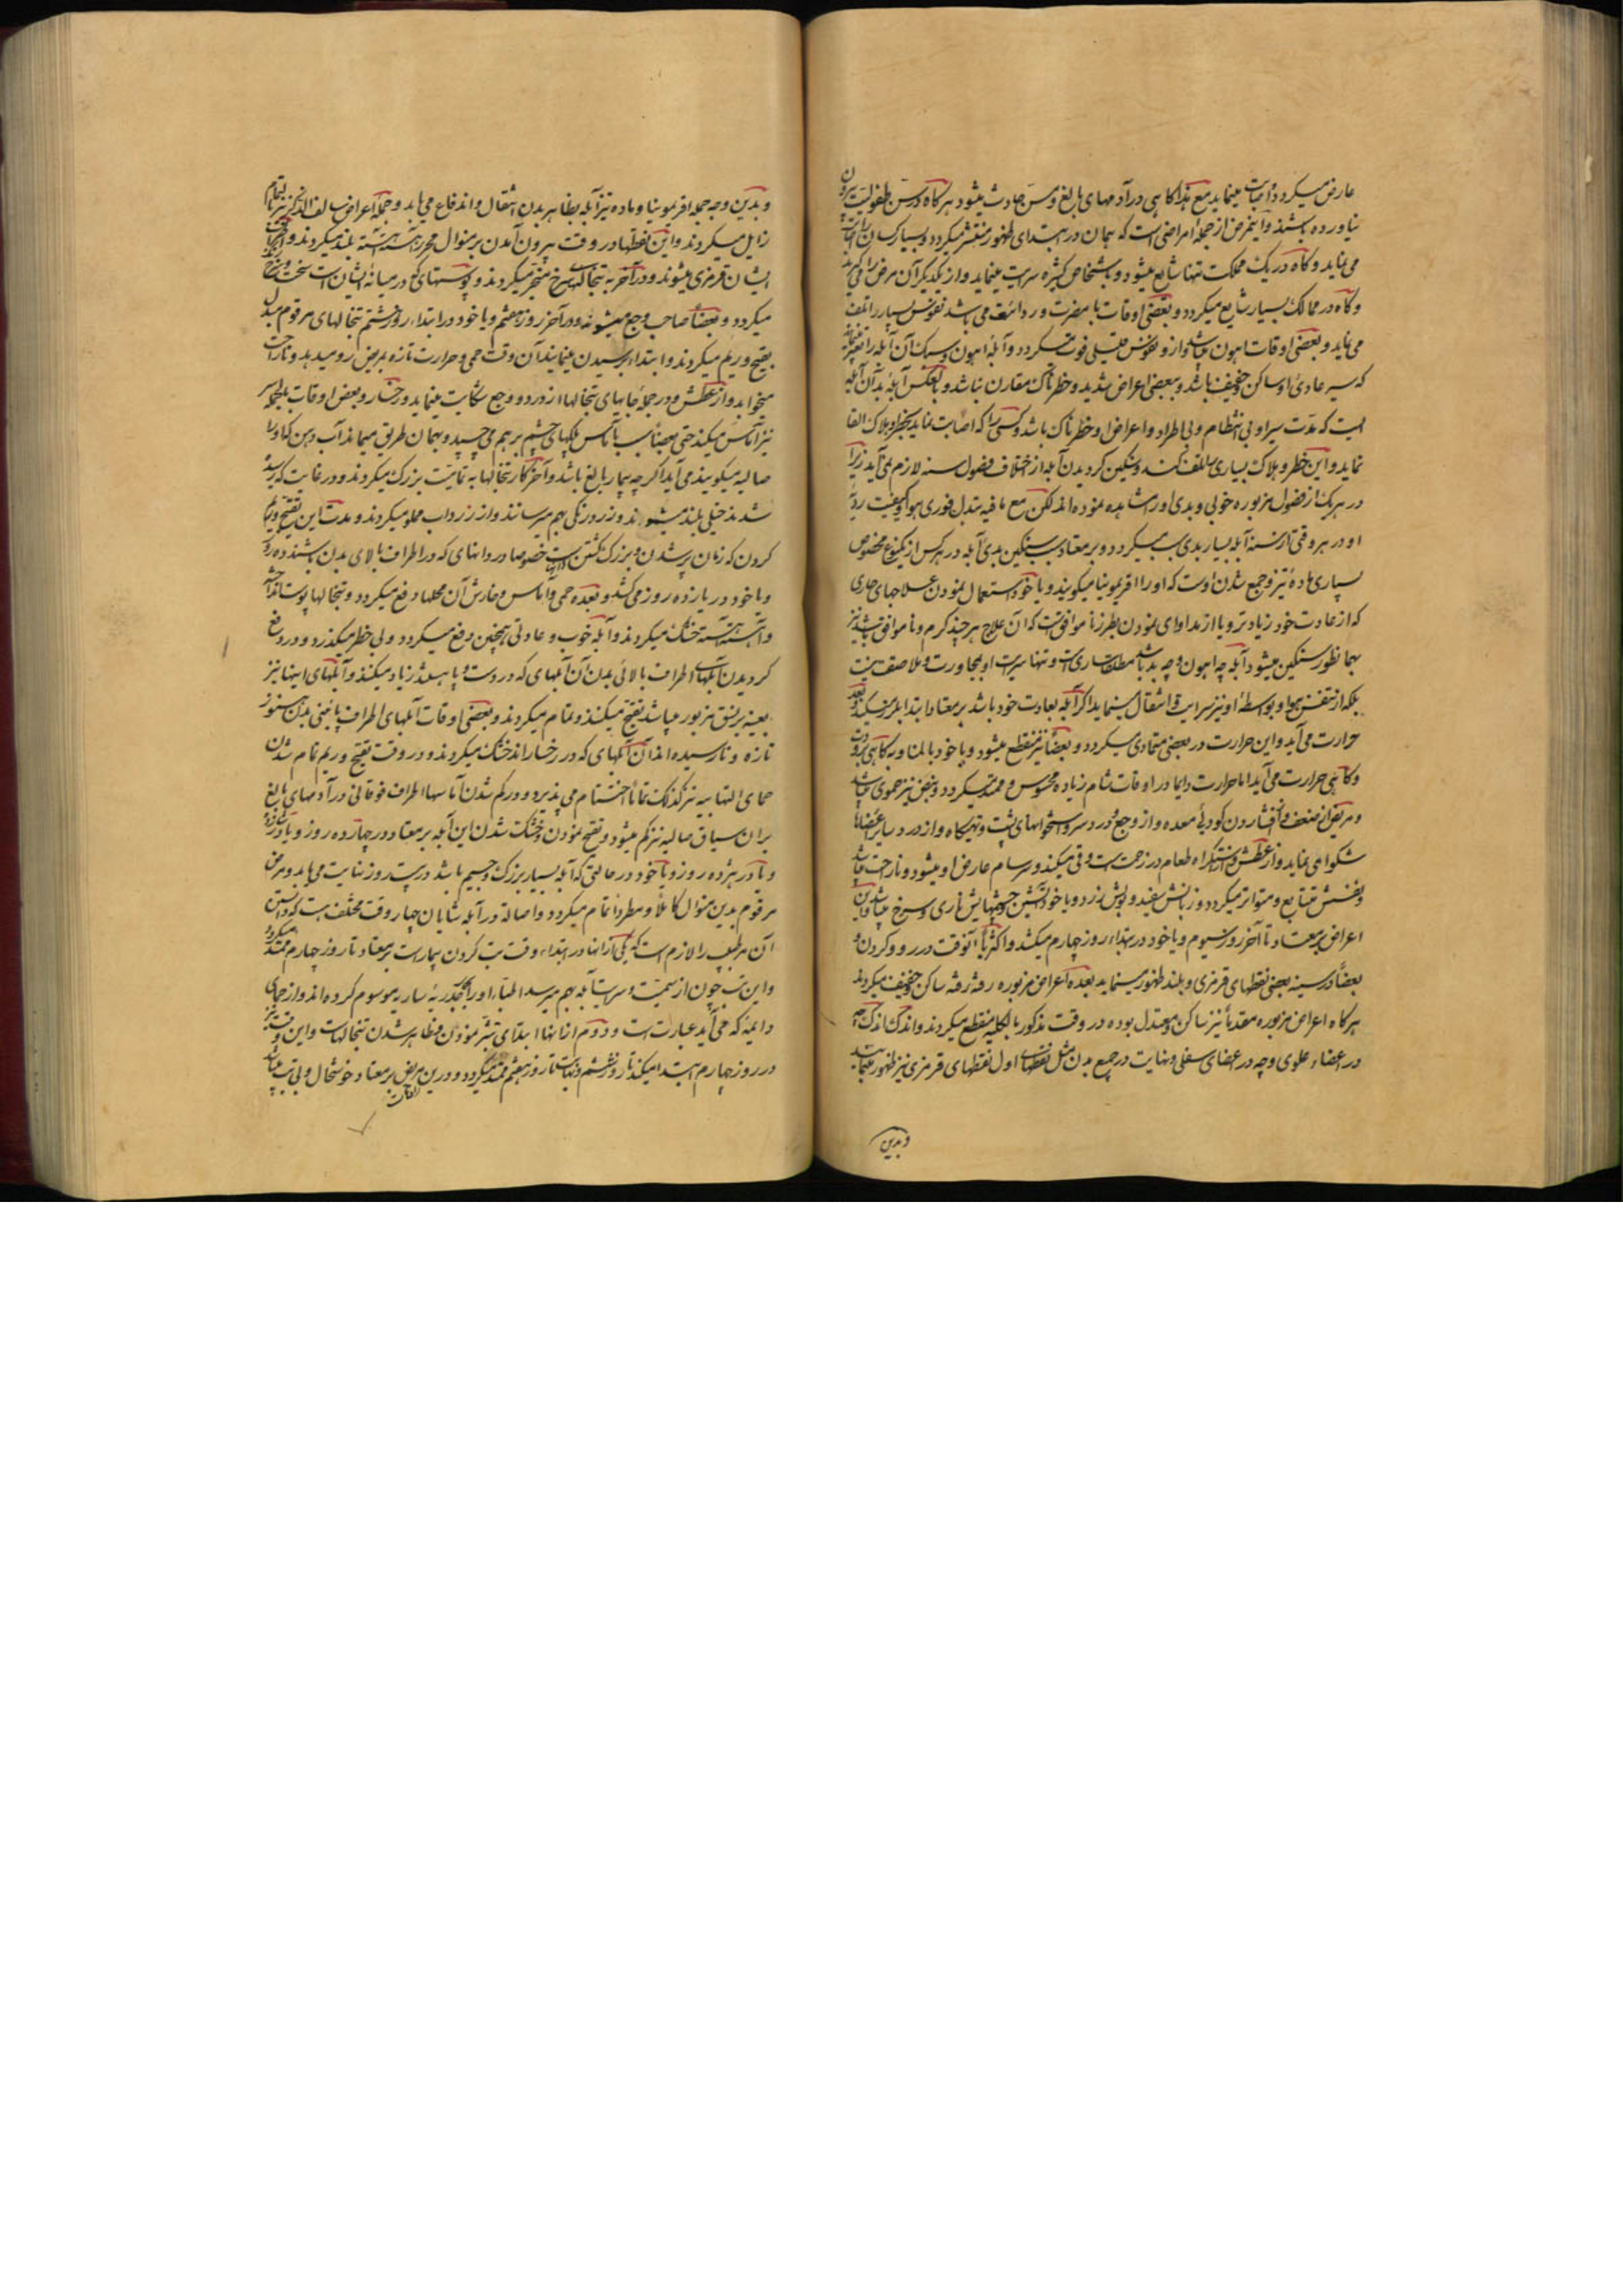 عارض میکردد و اثبات مینماید مع هذا کاهی در آدمهای بالغ و مسن حادث میشود هرکاه در سن طفولیت بیرون
نیاورده باشند و اینمرض از جملهٔ امراضی است که بهمان در ابتدای ظهور منتشر میکردد و بسیار کسان را
می نماید و کاه در یک مملکت تنها شایع میشود و باشخاص کثیره سرایت مینماید و از یکدیکر آن مرض را
و کاه در ممالک بسیار شایع میکردد و بعضی اوقات با مضرت و رداءت می باشد نفوس بسیار را تلف
می نماید و بعضی اوقات اهون میباشد و از و نفوس قلیلی فوت میکردد و آبلهٔ اهون و سبک آن آبله را
که سیر عادئ او ساکن و خفیف باشد و ببعضی اعراض شدید و خطرناک مقارن نباشد و بالعکس آبلهٔ بد آن آبله
است که مدت سیر او بی انتظام و بی اطراد و اعراض او خطرناک باشد و کسی را که اصابت نماید بخطر و هلاک القا
نماید و این خطر و هلاک بسیاری را تلف کند و سنکین کردیدن آبله از اختلاف فصول سنه لازم می آید زیرا
در هر یک از فصول مزبوره خوبی و بدی او را مشاهده نموده اند لکن مع ما فیه تبدل فوری هوا و کیفیت ردیّ
او در هر وقتی از سنه آبله بسیار بدی سبب میکردد و بر معتاد سبب سنکین بدی آبله در هر کس از یکنوع مخصوص
بسیاری ماده تیز و جمع شدن اوست که او را افریمونیا میکویند و یا خود استعمال نمودن علاجهای حاری
که از عادت خود زیادتر و یا از مداوای نمودن بطرز ناموافق است که آن علاج هر چند کرم و ناموافق باشد نیز
بهمانطور سنکین میشود آبله چه اهون و چه بد باشد مطلقا ساری است و تنها سرایت او بمجاورت و ملاصقت نیست
بلکه از تنفس هوا و بواسطهٔ او نیز سرایت و انتقال مینماید اکر آبله بعادت خود باشد بر معتاد ابتدا بلرز میکند و بعد
حرارت می آید و این حرارت در بعضی متمادی میکردد و بعضا نیز منقطع میشود و یا خود بالمناوبه کاهی برودت
و کاهی حرارت می آید اما حرارت دایما در اوقات شام زیاده محسوس و ممتد میکردد و نبض نیز حموی میباشد
و مریض از ضعف و افشاردن کودئ معده و از وجع و درد سر و استخوانهای پشت و تهیکاه و از درد سایر اعضاها
شکوا می نماید و از عطش و استکراه طعام در زحمت است و قی میکند و سرسام عارض او میشود و ناراحت میباشد
و نفسش متتابع و متواتر میکردد و زبانش سفید و بولش زرد و یا خود آتشین و چشمهایش ناری و سرخ میباشد و این
اعراض بر معتاد تا آخر روز سیوم و یا خود در ابتداء روز چهارم میکشد و اکثریا آنوقت در رو و کردن و
بعضا در سینه بعضی نقطهای قرمزی و بلند ظهور مینماید بعده اعراض مزبوره رفته رفته ساکن و خفیف میکردند
هرکاه اعراض مزبوره مقدما نیز ساکن و معتدل بوده در وقت مذکور بالکلیه منقطع میکردند و اندک اندک چه
در اعضاء علوی و چه در اعضای سفلی و نهایت در جمیع بدن مثل نقطهای اول نقطهای قرمزی نیز ظهور مینماید
و بدین
و بدین وجه جمله افریمونیا و ماده تیز آبله بظاهر بدن انتقال و اندفاع می یابد و جمله اعراض سالف الذکر نیز بتمام
زایل میکردند و این نقطها در وقت بیرون آمدن بر منوال محرر آهسته آهسته بلند میکردند و
ایشان قرمزی میشوند و در آخر به تبخالهای سرخ منجر میکردند و پوستهای که در میانهٔ ایشان است سخت و
میکردد و بعضا صاحب وجع میشوند و در آخر روز هفتم و یا خود در ابتداء روز هشتم تبخالهای مرقوم مبدل
بقیح و ریم میکردند و ابتداء برسیدن مینمایند آن وقت حمی و حرارت تازه بمریض رو میدهد و ناراحت
میخوابد و از عطش و در جملهٔ جایهای تبخالها از درد و وجع شکایت مینماید و رخسار و بعض اوقات بالجمله سر
نیز آماس میکند حتی بعضا بسبب آماس پلکهای چشم بر هم می چسپد و بهمان طریق میماند آب دهن که او را
صالیه میکویند می آید اکر چه بیمار بالغ باشد و آخر کار تبخالها به تمامیت بزرک میکردند و در غایت که رسیده
شدند خیلی بلند میشوند و زرد رنکی بهم میرسانند و از زرداب مملو میکردند و مدت این تقیح و ریم
کردن که زمان پر شدن و بزرک کشتن دانهاست خصوصا در دانهای که در اطراف بالای بدن باشند ده روز
و یا خود در یازده روز می کشد و بعده حمی و آماس و خارش آن محلها دفع میکردد و تبخالها پوست انداخته
و آهسته آهسته خشک میکردند و آبلهٔ خوب و عادتی اینچنین دفع میکردد و بی خطر میکذرد و در دفع
کردیدن آبلهای اطراف بالائی بدن آن آبلهای که در دست و پا باشند زیاد میکنند و آبلهای اینها نیز
بعینه بر نسق مزبور میباشد تقیح میکنند و تمام میکردند و بعضی اوقات آبلهای اطراف پائینی بدن هنوز
تازه و نارسیده اند آن آبلهای که در رخسار اند خشک میکردند و در وقت تقیح و ریم تمام شدن
حمای التهابیه نیز کذلک تماما اختتام می پذیرد و ورم کم شدن آماسها اطراف فوقانی در آدمهای بالغ
بر آن سیاق صالیه نیز کم میشود و تقیح نمودن و خشک شدن این آبله بر معتاد در چهارده روز و یا در
و یا در هژده روز و یا خود در حالتی که آبله بسیار بزرک و جسیم باشد در بیست روز نهایت می یابد و مرض
مرقوم بدین منوال کاملا و مطردا تمام میکردد و اصالة در آبله شایان چهار وقت مختلف هست که دانستن
آن هر طبیب را لازم است که یکی از آنها در ابتداء وقت تب کردن بیمار است بر معتاد تا روز چهارم ممتد میکردد
و این تب چون از سمیت و سرایت آبله بهم میرسد اطبا او را بحمی جدریهٔ ساریه موسوم کرده اند و از حمای
دایمه که می آید عبارت است و دوم از اینها ابتدای تبثر نمودن و ظاهر شدن تبخالهاست و این وقت نیز
در روز چهارم ابتدا میکند تا روز ششم و نهایت تا روز هفتم ممتد میکردد و درین اوقات مریض بر معتاد خوشحال و بی تب میباشد